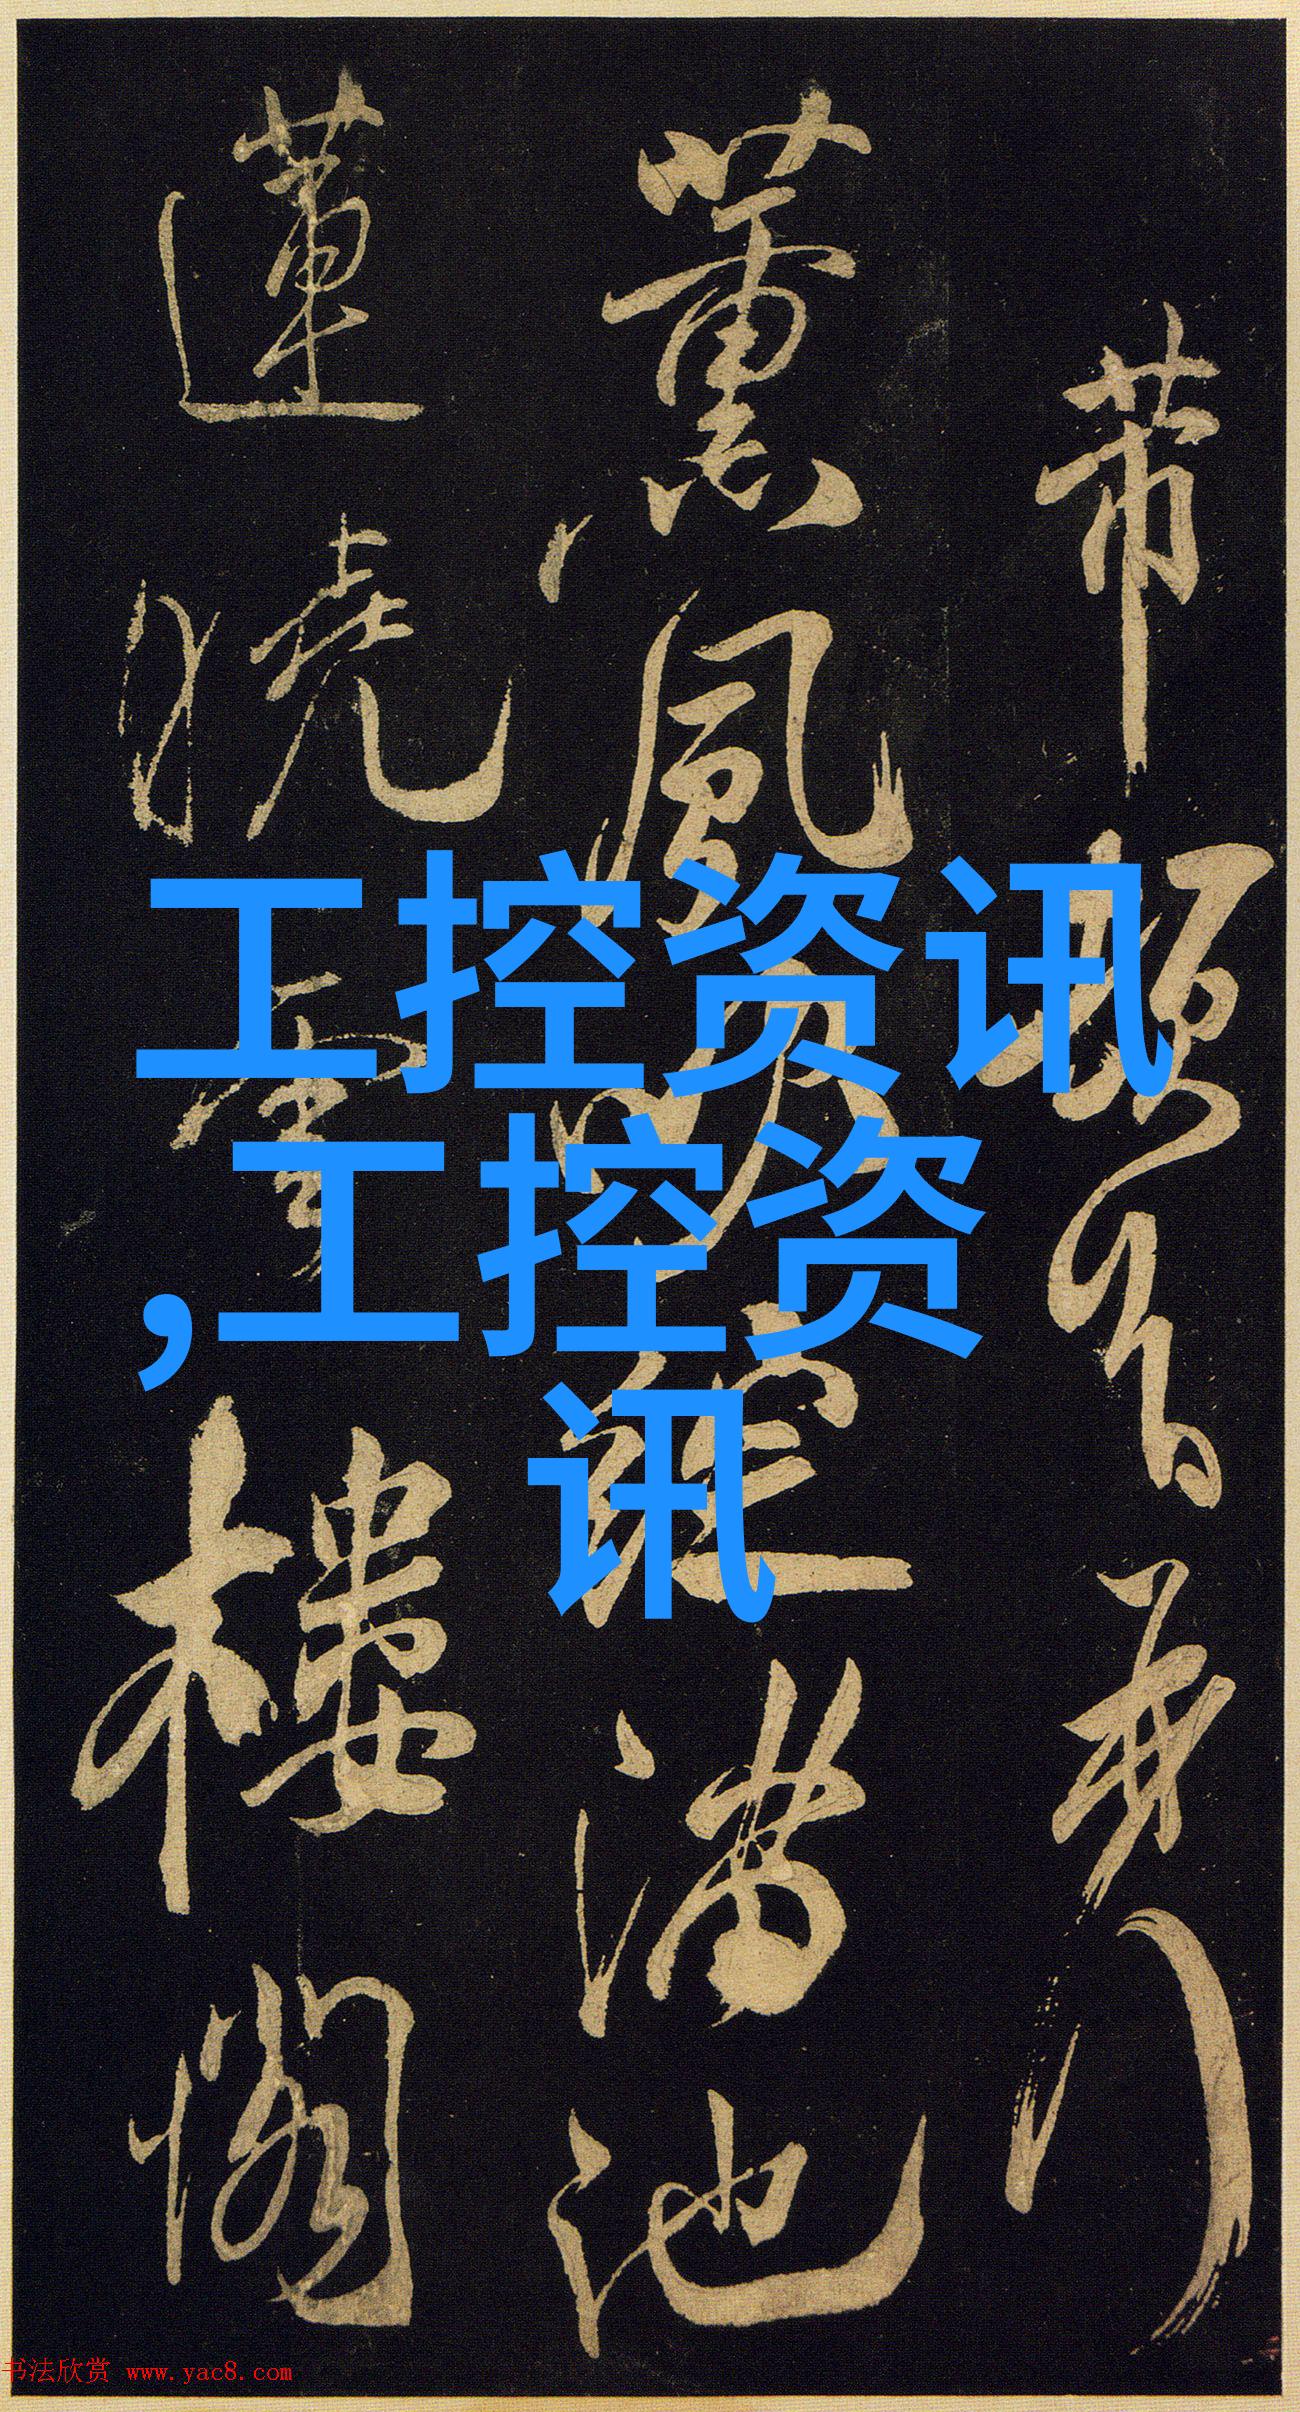 薰風吹綻滿池
蓮曉雲樓閣
工控资讯
,工控资
讯
书法欣赏 www.yac8.com